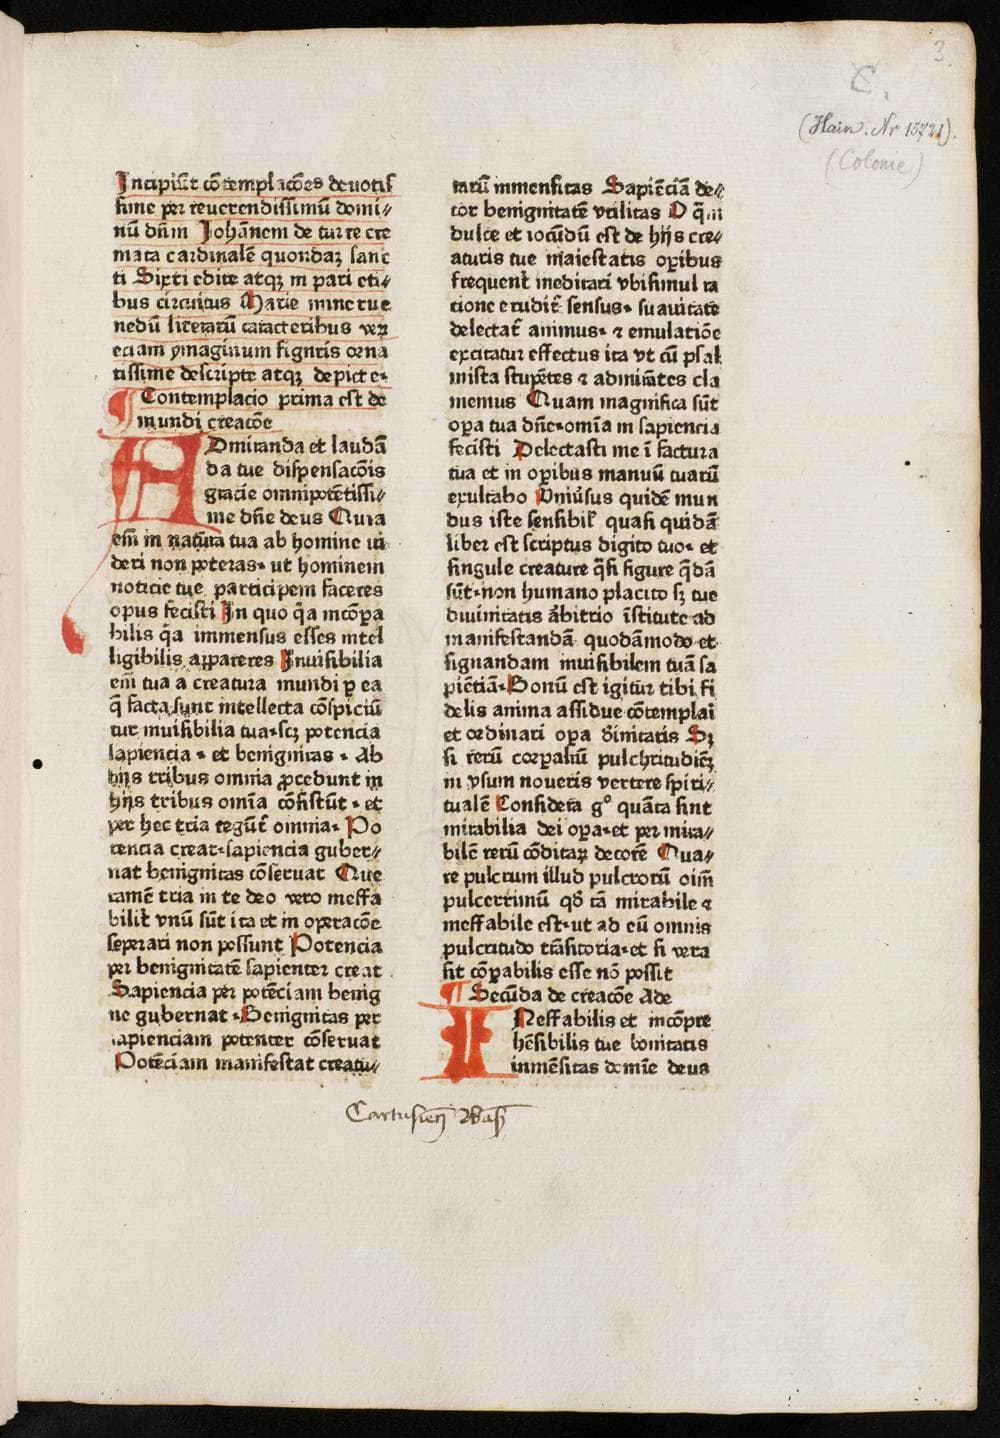 3.
C.
(Hain. Nr 15721).
(Colonie)
Incipiūt cōtemplacōes deuotis
sime per reuerendissimū domi//
nū dn̄m Johānem de turre cre
mata cardinalē quondaꝫ sanc
ti Sixti edite atqꝫ in pari eti//
bus circuitus Marie minerue
nedū literarū caracteribus veꝝ
eciam ymaginum figuris orna
tissime descripte atqꝫ depicte·
¶ Contemplacio prima est de
mundi creacōe
ADmiranda et laudā
da tue dispensacōis
gracie omnipotētissi//
me dn̄e deus Quia
em̄ in natura tua ab homine ui
deri non poteras· ut hominem
noticie tue participem faceres
opus fecisti In quo q̄a incōꝑa
bilis q̄a immensus esses intel
ligibilis appareres Inuisibilia
em̄ tua a creatura mundi ꝑ ea
q̄ facta sunt intellecta cōspiciū
tur inuisibilia tua·scꝫ potencia
sapiencia · et benignitas · Ab
hijs tribus omnia ꝓcedunt in
hijs tribus omīa cōsistūt · et
per hec tria regūt̄ omnia· Po
tencia creat·sapiencia guber//
nat benignitas cōseruat Que
tamē tria in te deo vero ineffa
bilit̄ vnū sūt ita et in operacōe
seperari non possunt Potencia
per benignitatē sapienter creat
Sapiencia per potēciam benig
ne gubernat ·Benignitas per
sapienciam potenter cōseruat
Potēciam manifestat creatu//
rarū inmensitas Sapiēciā de//
cor benignitatē vtilitas O q̄m
dulce et iocūdū est de hijs cre//
aturis tue maiestatis oꝑibus
frequent̄ meditari vbi simul ra
cione erudit̄ sensus· suauitate
delectat̄ animus· ⁊ emulatiōe
excitatur effectus ita vt cū psal
mista stupētes ⁊ admirātes cla
memus Quam magnifica sūt
oꝑa tua dn̄e·omīa in sapiencia
fecisti Delectasti me ī factura
tua et in oꝑibus manuū tuarū
exultabo Vniūsus quidē mun
dus iste sensibil̄ quasi quidā
liber est scriptus digito tuo· et
singule creature q̄si figure q̄dā
sūt·non humano placito sꝫ tue
diuinitatis ārbitrio īstitute ad
manifestandā quodāmodo et
signandam inuisibilem tuā sa
piētiā·Bonū est igitur tibi fi
delis anima assidue cōtemplai
et ordinari oꝑa diuinitatis Sꝫ
si rerū corꝑaliū pulchritudinēꝫ
in vsum noueris vertere spiri//
tualē Considera gº quāta sint
mirabilia dei oꝑa·et per mira//
bilē rerū cōditaꝝ decorē Qua//
re pulcrum illud pulcrorū oīm
pulcerrimū qđ tā mirabile ⁊
ineffabile est·ut ad eū omnis
pulcritudo trāsitoria·et si vera
sit cōꝑabilis esse nō possit
¶ Secūda de creacōe Ade
INeffabilis et incōpre
hēsibilis tue bonitatis
inmēsitas domīe deus
Cartusien̄ Bas̄